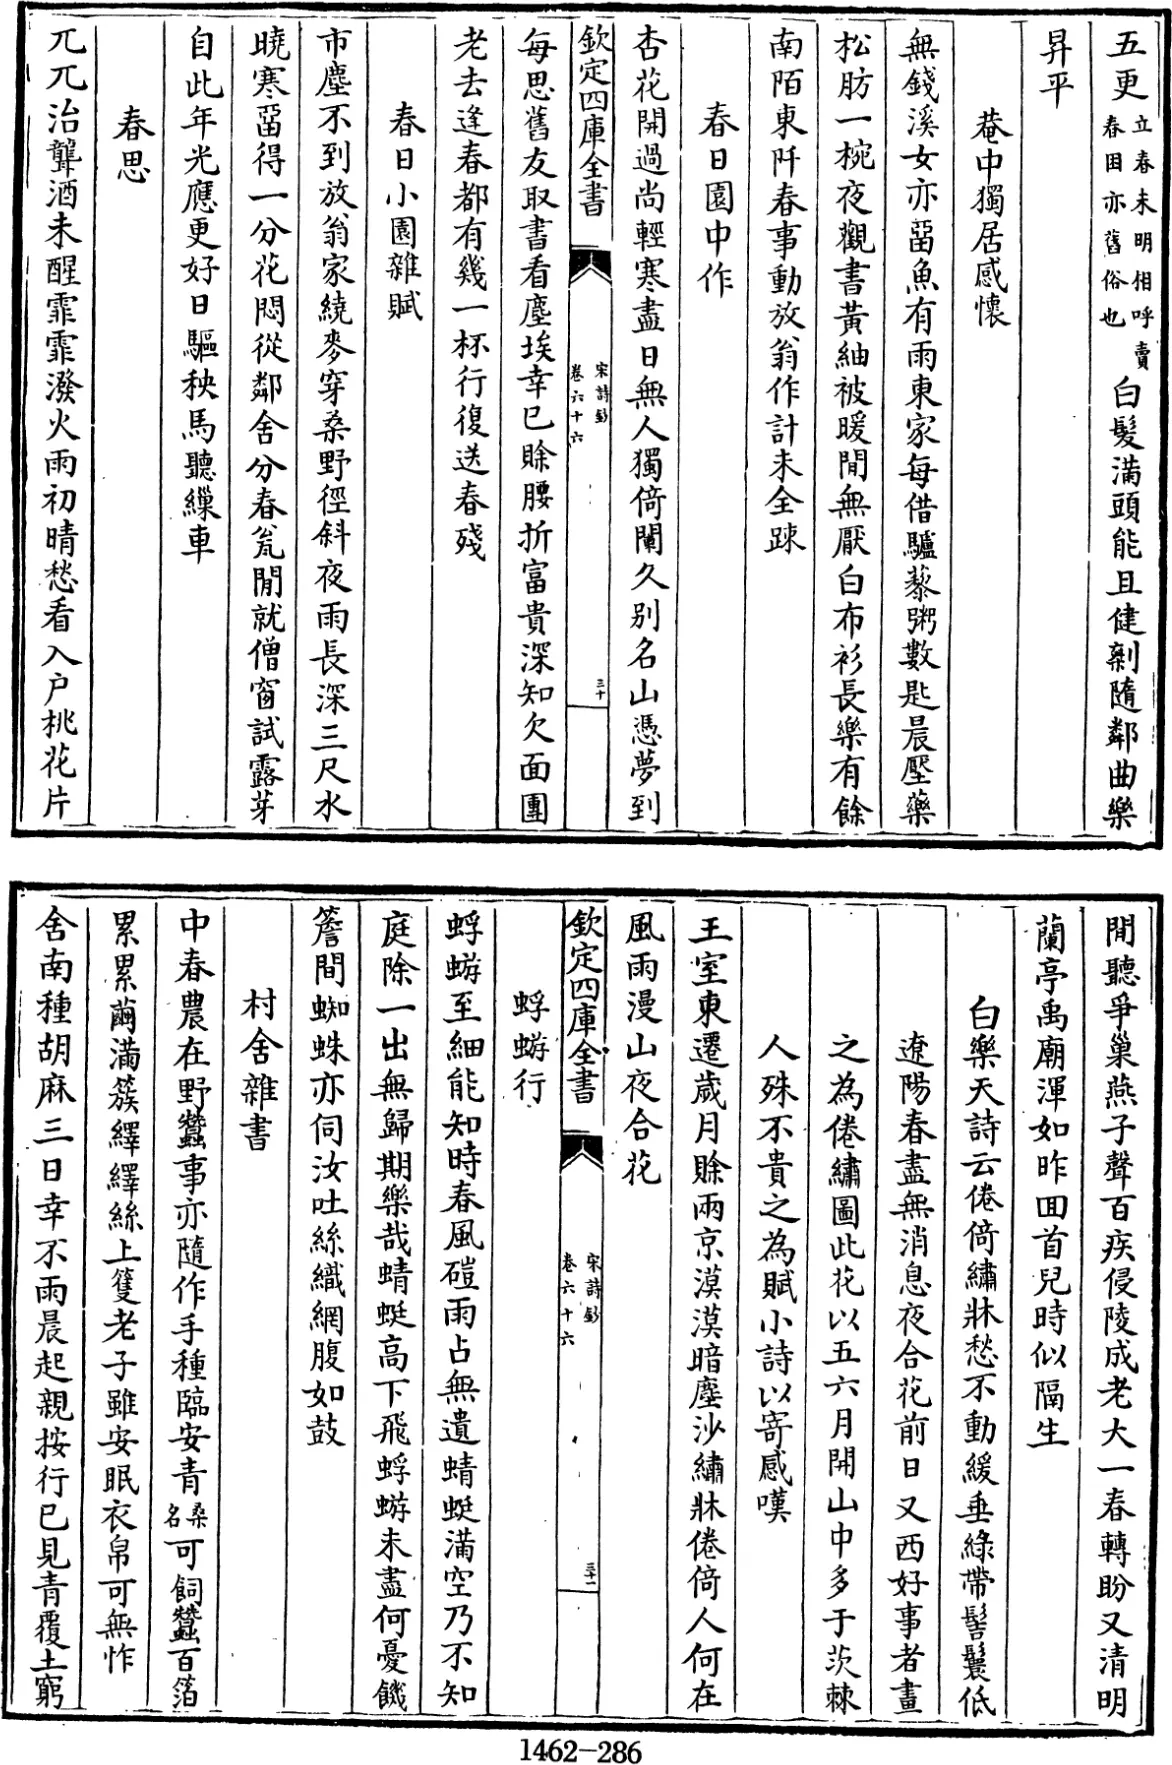 五更立春未明相呼賣春困亦舊俗也白髮滿頭能且健剩隨鄰曲樂
昇平
菴中獨居感懷
無錢溪女亦留魚有雨東家每借驢藜粥數匙晨壓藥
松肪一椀夜觀書黃紬被暖閒無厭白布衫長樂有餘
南陌東阡春事動放翁作計未全疎
春日園中作
杏花開過尚輕寒盡日無人獨倚闌久别名山憑夢到
欽定四庫全書
宋詩鈔
卷六十六
三十
每思舊友取書看塵埃幸已賒腰折富貴深知欠面團
老去逢春都有幾一杯行復送春殘
春日小園雜賦
市塵不到放翁家繞麥穿桑野徑斜夜雨長深三尺水
曉寒留得一分花悶從鄰舍分春瓮閒就僧窗試露芽
自此年光應更好日驅秧馬聽繅車
春思
兀兀治聾酒未醒霏霏潑火雨初晴愁看入户桃花片
閒聽爭巢燕子聲百疾侵陵成老大一春轉盼又清明
蘭亭禹廟渾如昨回首兒時似隔生
白樂天詩云倦倚繡牀愁不動緩垂綠帶髻鬟低
遼陽春盡無消息夜合花前日又西好事者畫
之為倦繡圖此花以五六月開山中多于茨棘
人殊不貴之為賦小詩以寄感嘆
王室東遷歲月賒兩京漠漠暗塵沙繡牀倦倚人何在
風雨漫山夜合花
欽定四庫全書
宋詩鈔
卷六十六
三十一
蜉蝣行
蜉蝣至細能知時春風磑雨占無遺蜻蜓滿空乃不知
庭除一出無歸期樂哉蜻蜓高下飛蜉蝣未盡何憂饑
簷間蜘蛛亦伺汝吐絲織網腹如鼓
村舍雜書
中春農在野蠶事亦隨作手種臨安青桑名可飼蠶百箔
累累繭滿簇繹繹絲上籰老子雖安眠衣帛可無怍
舍南種胡麻三日幸不雨晨起親按行已見青覆土窮
1462-286